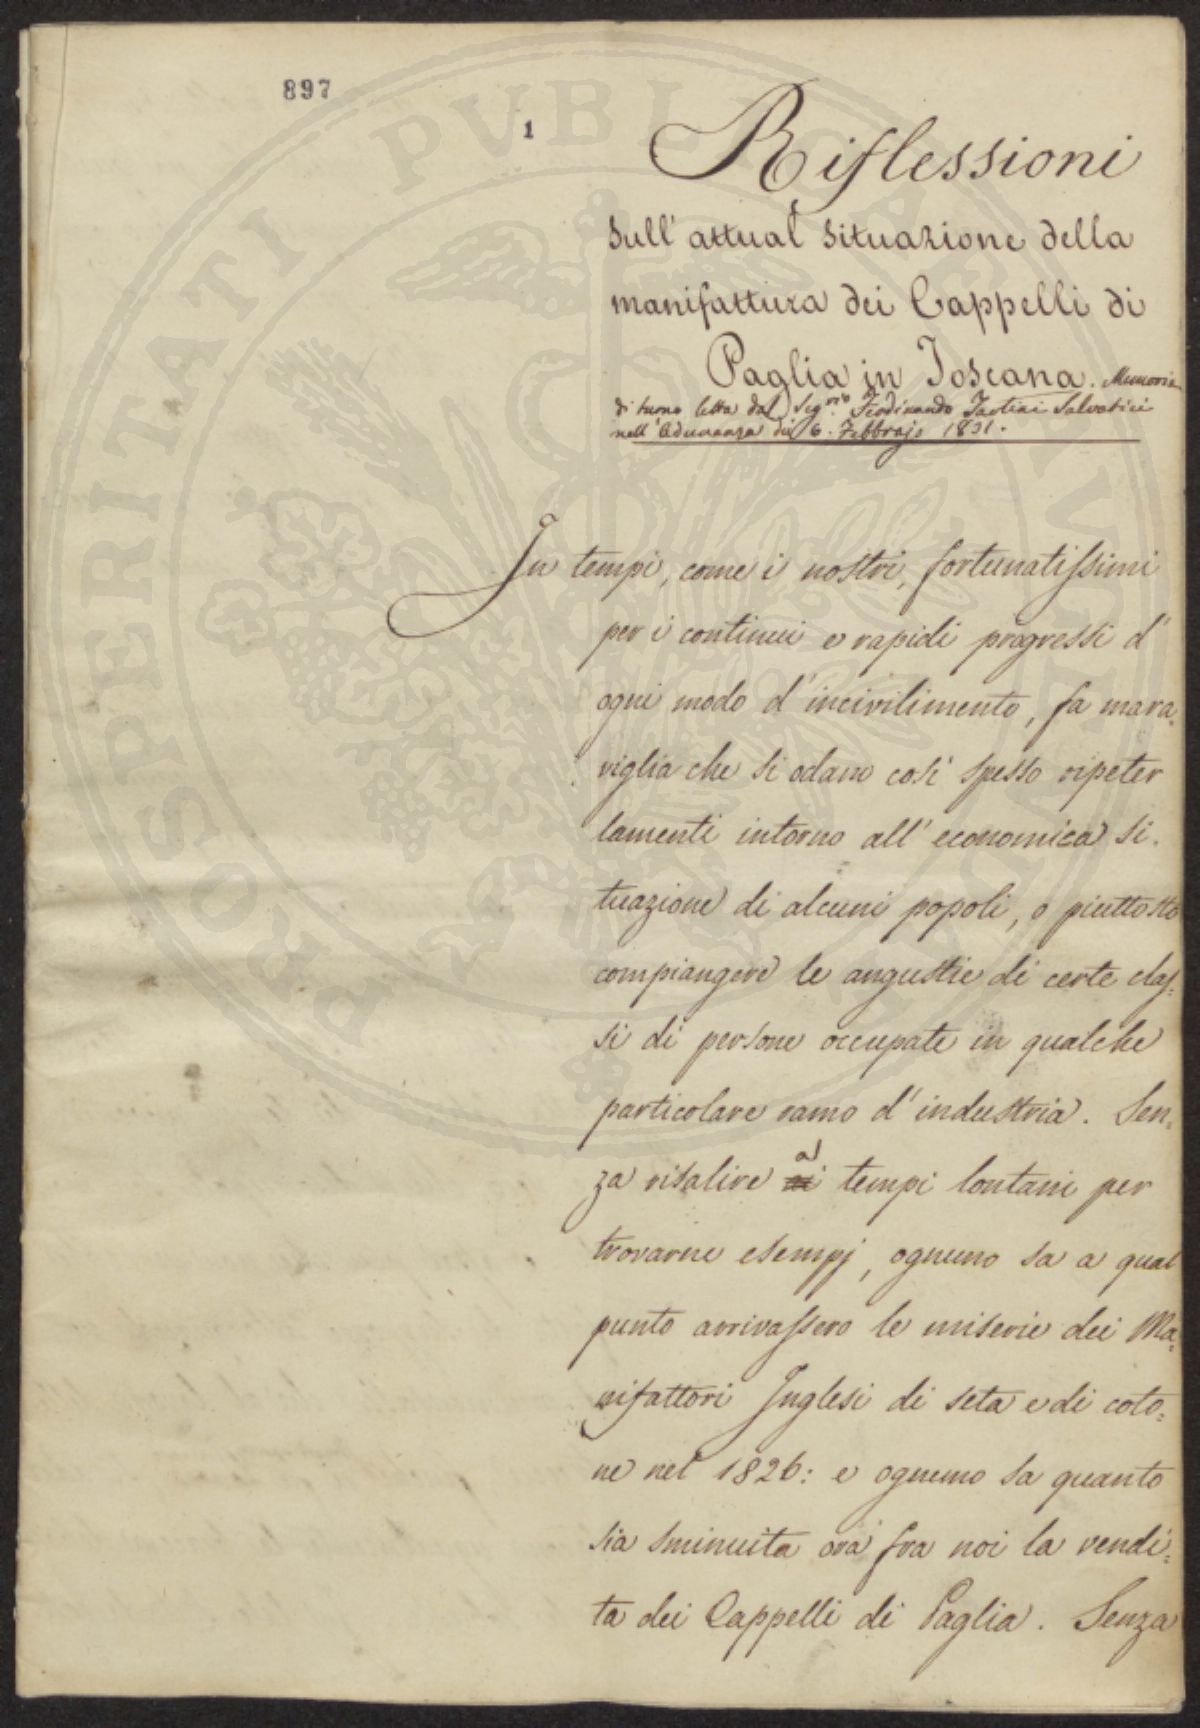 897
1
Riflessioni
sull' attual situazione della
manifattura dei Cappelli di
Paglia in Toscana. Memoria
di turno letta dal Seg.rio Ferdinando Tartini Salvatici
nell' Adunanza del 6. Febbrajo 1831.
In tempi, come i nostri, fortunatissimi
per i continui e rapidi progressi d'
ogni modo d' incivilimento, fa mara-
viglia che si odano così spesso ripeter
lamenti intorno all' economica si-
tuazione di alcuni popoli, o piuttosto
compiangere le angustie di certe clas-
si di persone occupate in qualche
particolare ramo d' industria. Sen-
za risalire a tempi lontani per
trovarne esempj, ognuno sa a qual
punto arrivassero le miserie dei Ma-
nifattori Inglesi di seta e di coto-
ne nel 1826: e ognuno sa quanto
sia sminuita ora fra noi la vendi-
ta dei Cappelli di Paglia. Senza
PROSPERITATI PUBLICAE AUGENDAE